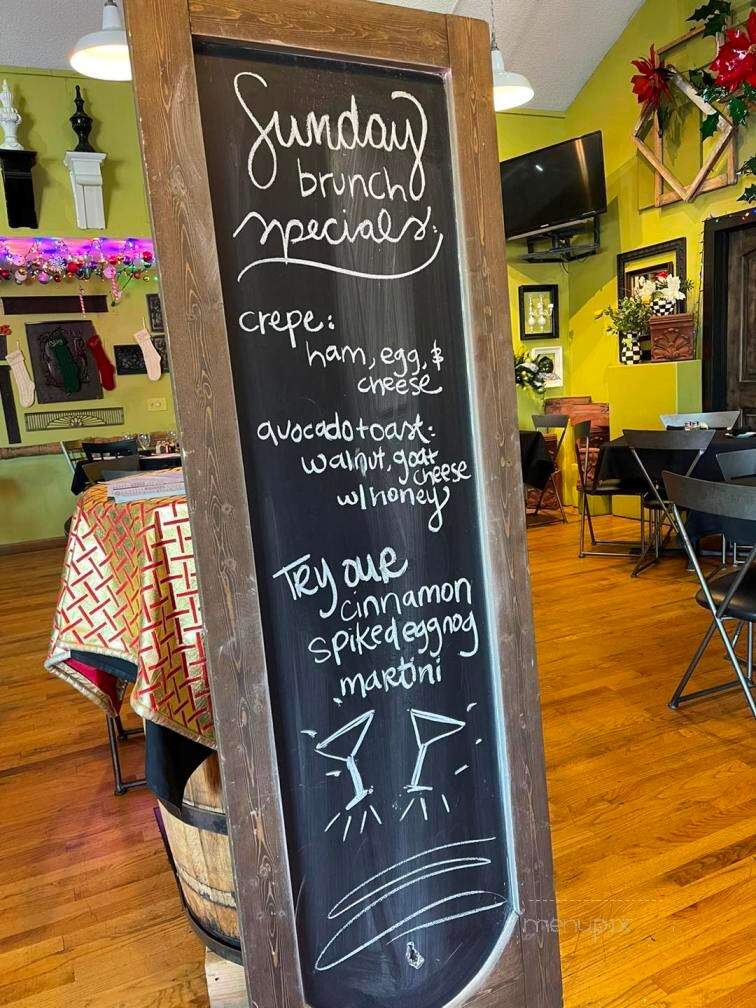 Sunday
brunch
specials:
crepe:
ham, egg, &
cheese
avocado toast:
walnut, goat
cheese
w/ honey
Try our
cinnamon
spiked eggnog
martini
menupix